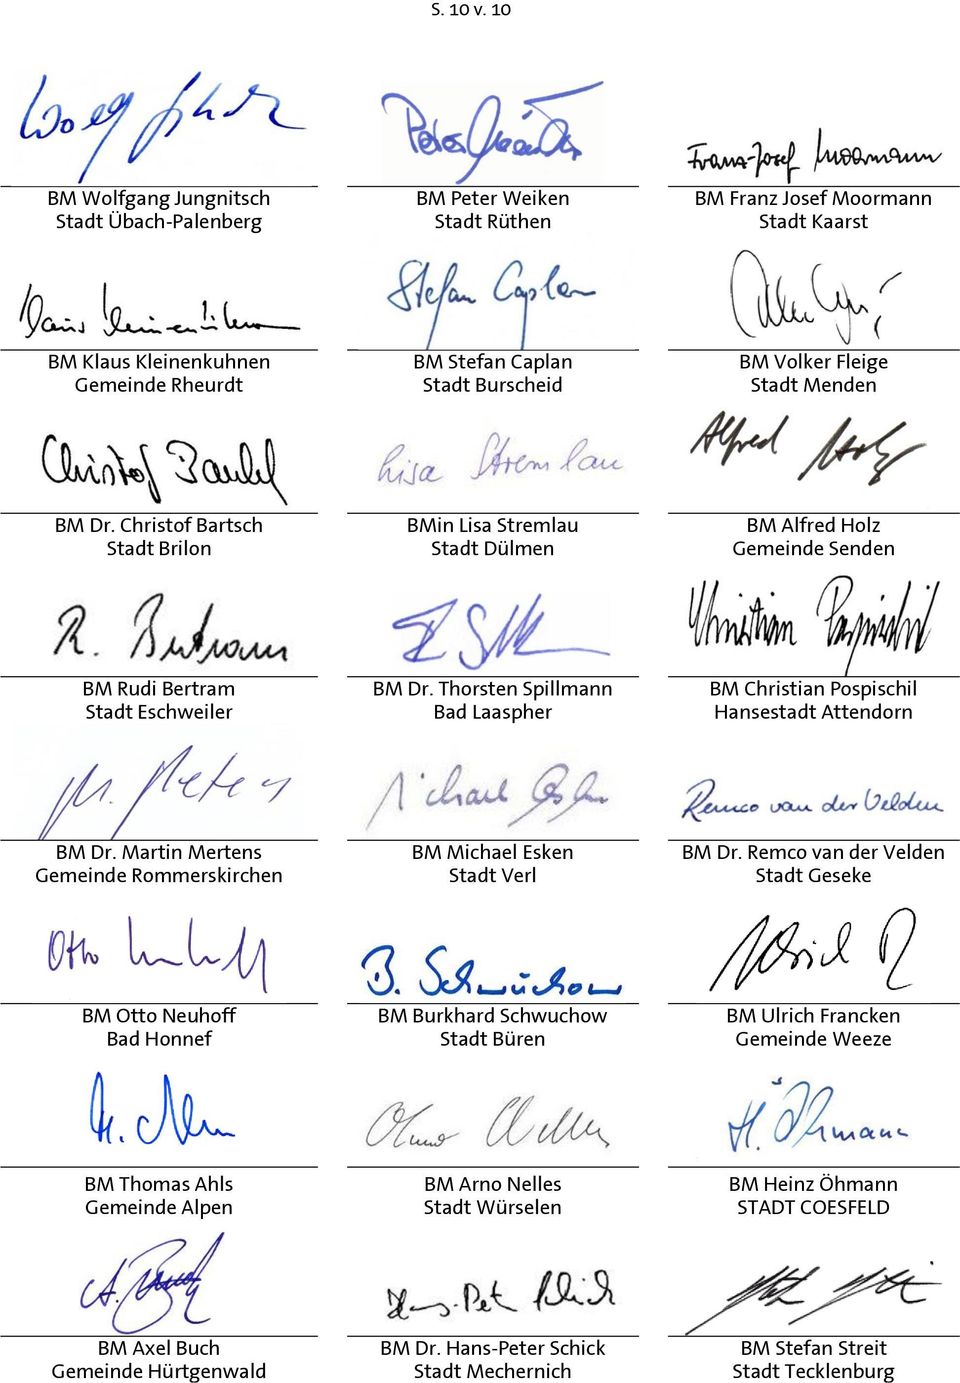 S. 10 v. 10
Peter
Franz-Josef Moormann
BM Wolfgang Jungnitsch
Stadt Übach-Palenberg
BM Peter Weiken
Stadt Rüthen
BM Franz Josef Moormann
Stadt Kaarst
Stefan Caplan
BM Klaus Kleinenkuhnen
Gemeinde Rheurdt
BM Stefan Caplan
Stadt Burscheid
BM Volker Fleige
Stadt Menden
Christof
Lisa Stremlau
Alfred Holz
BM Dr. Christof Bartsch
Stadt Brilon
BMin Lisa Stremlau
Stadt Dülmen
BM Alfred Holz
Gemeinde Senden
R. Bertram
Christian Pospischil
BM Rudi Bertram
Stadt Eschweiler
BM Dr. Thorsten Spillmann
Bad Laaspher
BM Christian Pospischil
Hansestadt Attendorn
Michael
Remco van der Velden
BM Dr. Martin Mertens
Gemeinde Rommerskirchen
BM Michael Esken
Stadt Verl
BM Dr. Remco van der Velden
Stadt Geseke
Otto
B. Schwuchow
BM Otto Neuhoff
Bad Honnef
BM Burkhard Schwuchow
Stadt Büren
BM Ulrich Francken
Gemeinde Weeze
H. Öhmann
BM Thomas Ahls
Gemeinde Alpen
BM Arno Nelles
Stadt Würselen
BM Heinz Öhmann
STADT COESFELD
Hans-Peter Schick
BM Axel Buch
Gemeinde Hürtgenwald
BM Dr. Hans-Peter Schick
Stadt Mechernich
BM Stefan Streit
Stadt Tecklenburg